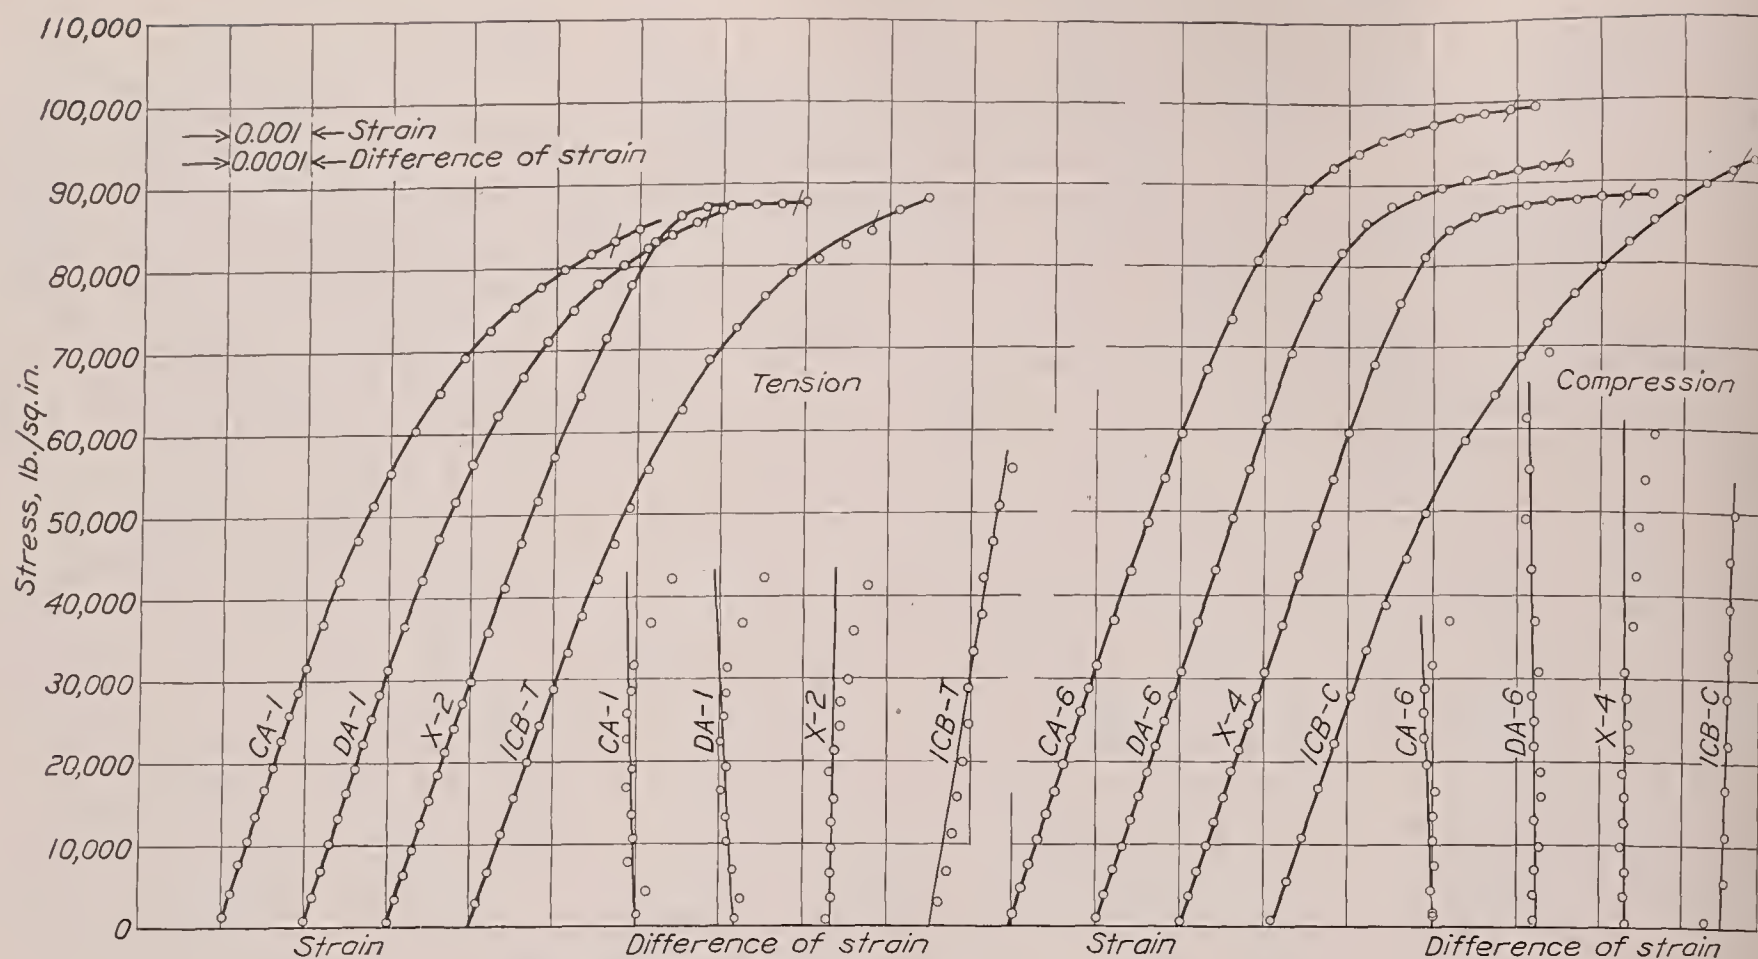 110,000
100,000
90,000
80,000
70,000
60,000
50,000
40,000
30,000
20,000
10,000
0
Stress, lb./sq.in.
0.001 Strain
0.0001 Difference of strain
Tension
Compression
CA-1
DA-1
X-2
ICB-T
CA-1
DA-1
X-2
ICB-T
CA-6
DA-6
X-4
ICB-C
CA-6
DA-6
X-4
ICB-C
Strain
Difference of strain
Strain
Difference of strain